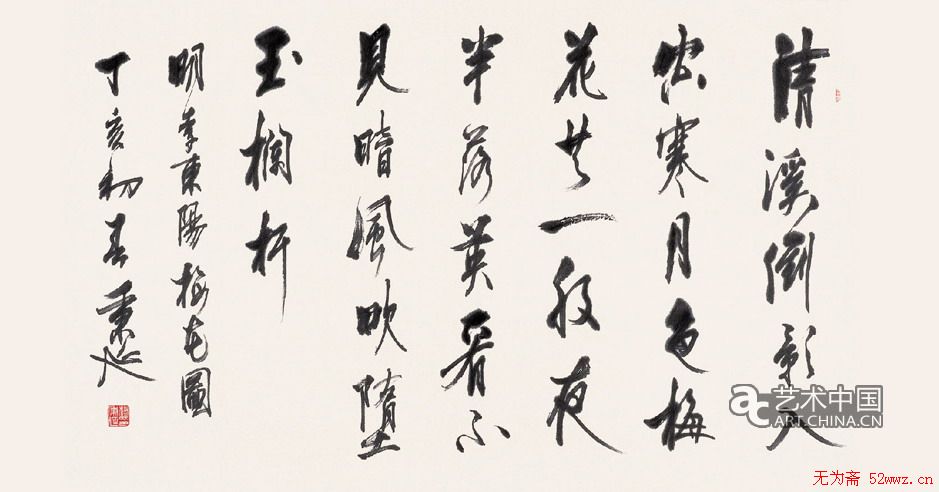 清溪倒影入
窓寒月色梅
花共一般夜
半落英看不
見暗風吹墮
玉欄杆
明李東陽梅花圖
丁亥初春
ac 艺术中国
ART.CHINA.CN
无为斋 52wwz.cn